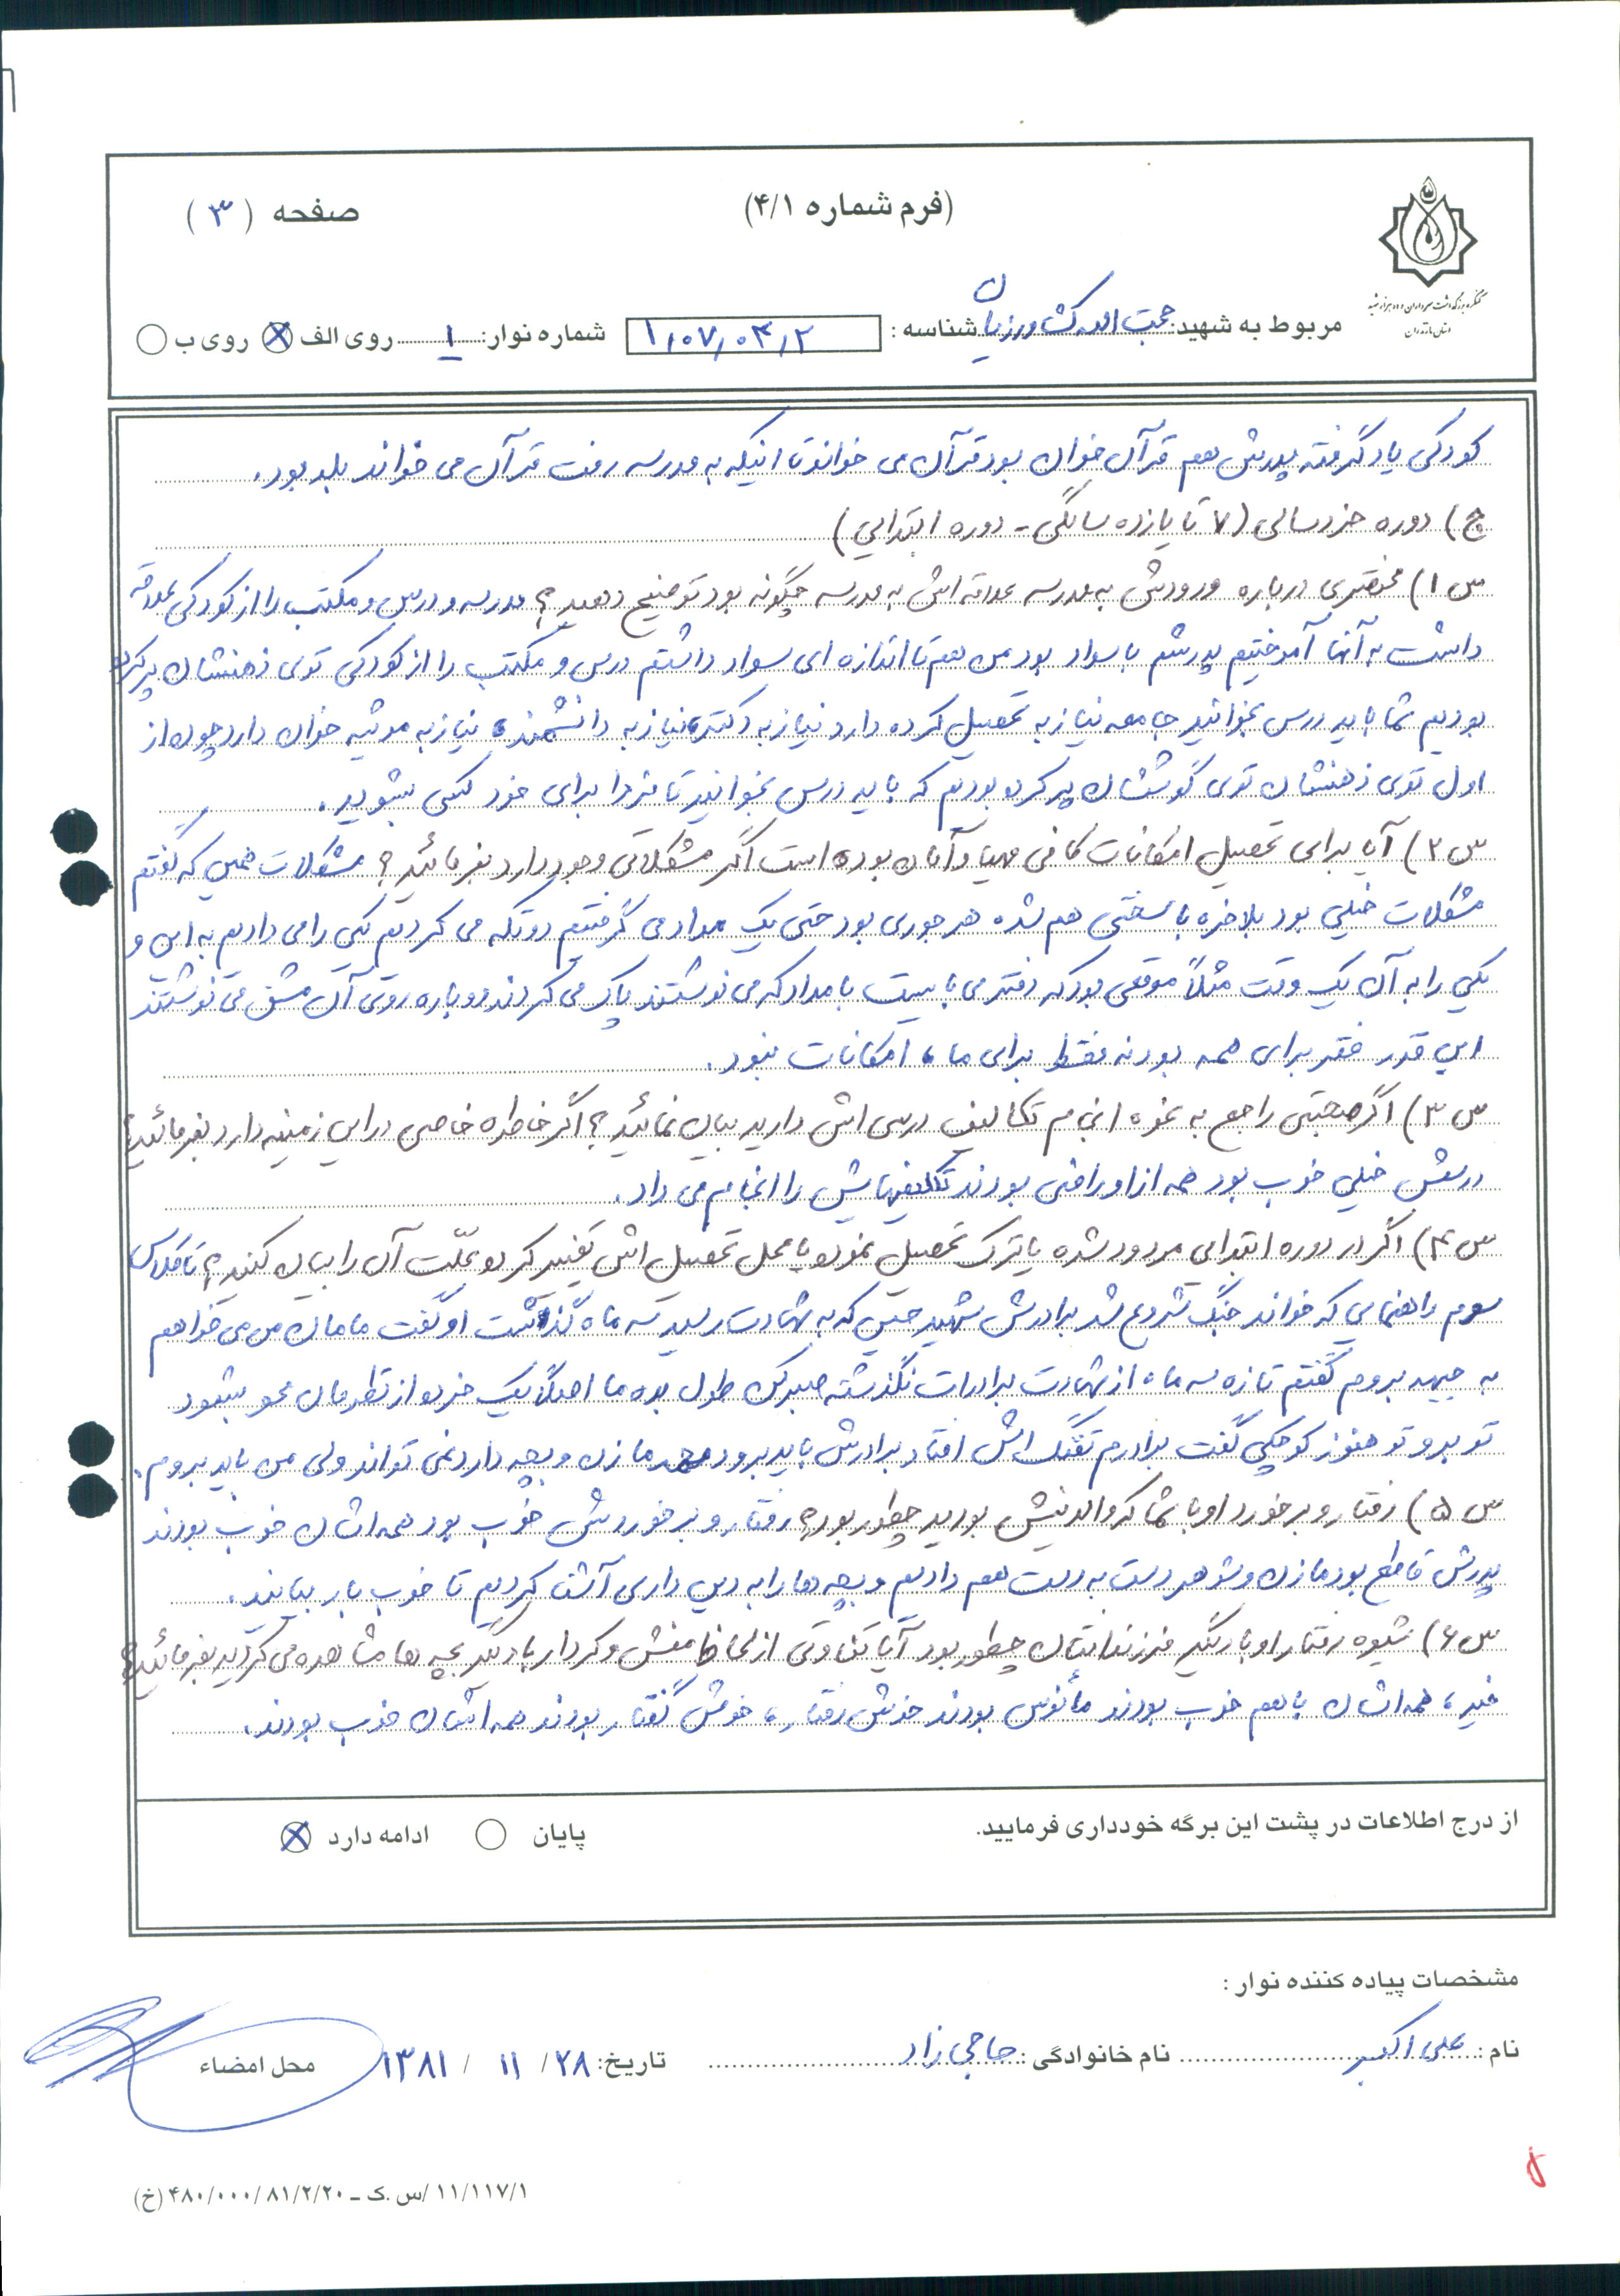 (فرم شماره ۴/۱)
صفحه (۳)
کنگره بزرگداشت سرداران و ده هزار شهید
استان مازندران
مربوط به شهید: حجت الله کشاورزیان شناسه: ۱,۰۷,۰۳,۲ شماره نوار: ۱ روی الف روی ب
کودکی یاد گرفته پدرش هم قرآن خوان بود قرآن می خواند تا اینکه به مدرسه رفت قرآن می خواند بلد بود.
ج) دوره خردسالی (۷ تا یازده سالگی - دوره ابتدایی)
س۱) مختصری درباره ورودش به مدرسه علاقه اش به مدرسه چگونه بود توضیح دهید؟ مدرسه و درس و مکتب را از کودکی علاقه
داشت به آنها آموختیم پدرشم با سواد بود من هم تا اندازه ای سواد داشتم درس و مکتب را از کودکی توی ذهنشان پر کرده
بودیم شما باید درس بخوانید جامعه نیاز به تحصیل کرده دارد نیاز به دکتر، نیاز به دانشمند، نیاز به مرثیه خوان دارد چون از
اول توی ذهنشان توی گوششان پر کرده بودیم که باید درس بخوانید تا فردا برای خود کسی بشوید.
س۲) آیا برای تحصیل امکانات کافی مهیا و آماده بوده است اگر مشکلاتی وجود دارد بفرمائید؟ مشکلات همین که گفتم
مشکلات خیلی بود بلاخره با سختی هم شده هر جوری بود حتی یک مداد می گرفتیم دو تکه می کردیم یکی را می دادیم به این و
یکی را به آن یک وقت مثلاً موقعی بود که دفتر می بایست با مداد که می نوشتند پاک می کردند دوباره روی آن مشق می نوشتند
این قدر فقر برای همه بود نه فقط برای ما، امکانات نبود.
س۳) اگر صحبتی راجع به نحوه انجام تکالیف درسی اش دارید بیان نمائید؟ اگر خاطره خاصی در این زمینه دارد بفرمائید؟
درسش خیلی خوب بود همه از او راضی بودند تکلیفهایش را انجام می داد.
س۴) اگر در دوره ابتدایی مردود شده یا ترک تحصیل نموده یا محل تحصیل اش تغییر کرده علّت آن را بیان کنید؟ تا کلاس
سوم راهنمایی که خواند جنگ شروع شد برادرش شهید حسین که به شهادت رسید سه ماه گذشت او گفت مامان من می خواهم
به جبهه بروم گفتم تازه سه ماه از شهادت برادرات نگذشته صبر کن طول بده ما اصلاً یک خرده از نظرمان محو بشود
تو برو تو هنوز کوچکی گفت برادرم تفنگ اش افتاد برادرش باید برود محمد ما زن و بچه دارد نمی تواند ولی من باید بروم.
س۵) رفتار و برخورد او با شما که والدینش بودید چطور بود؟ رفتار و برخوردش خوب بود همه اشان خوب بودند
پدرش قاطع بود ما زن و شوهر دست به دست هم دادیم و بچه ها را به دین داری آشنا کردیم تا خوب بار بیایند.
س۶) شیوه رفتار او با دیگر فرزندانتان چطور بود آیا تفاوتی از لحاظ منش و کردار با دیگر بچه ها مشاهده می کردید بفرمائید؟
خیر، همه اشان با هم خوب بودند مأنوس بودند خوش رفتار، خوش گفتار بودند همه اشان خوب بودند.
از درج اطلاعات در پشت این برگه خودداری فرمایید.
پایان ادامه دارد
مشخصات پیاده کننده نوار:
نام: علی اکبر نام خانوادگی: حاجی زاد تاریخ: ۲۸/ ۱۱ / ۱۳۸۱ محل امضاء
۱۱/۱۱۷/۱/س.ک – ۴۸۰/۰۰۰/۸۱/۲/۲۰ (خ)